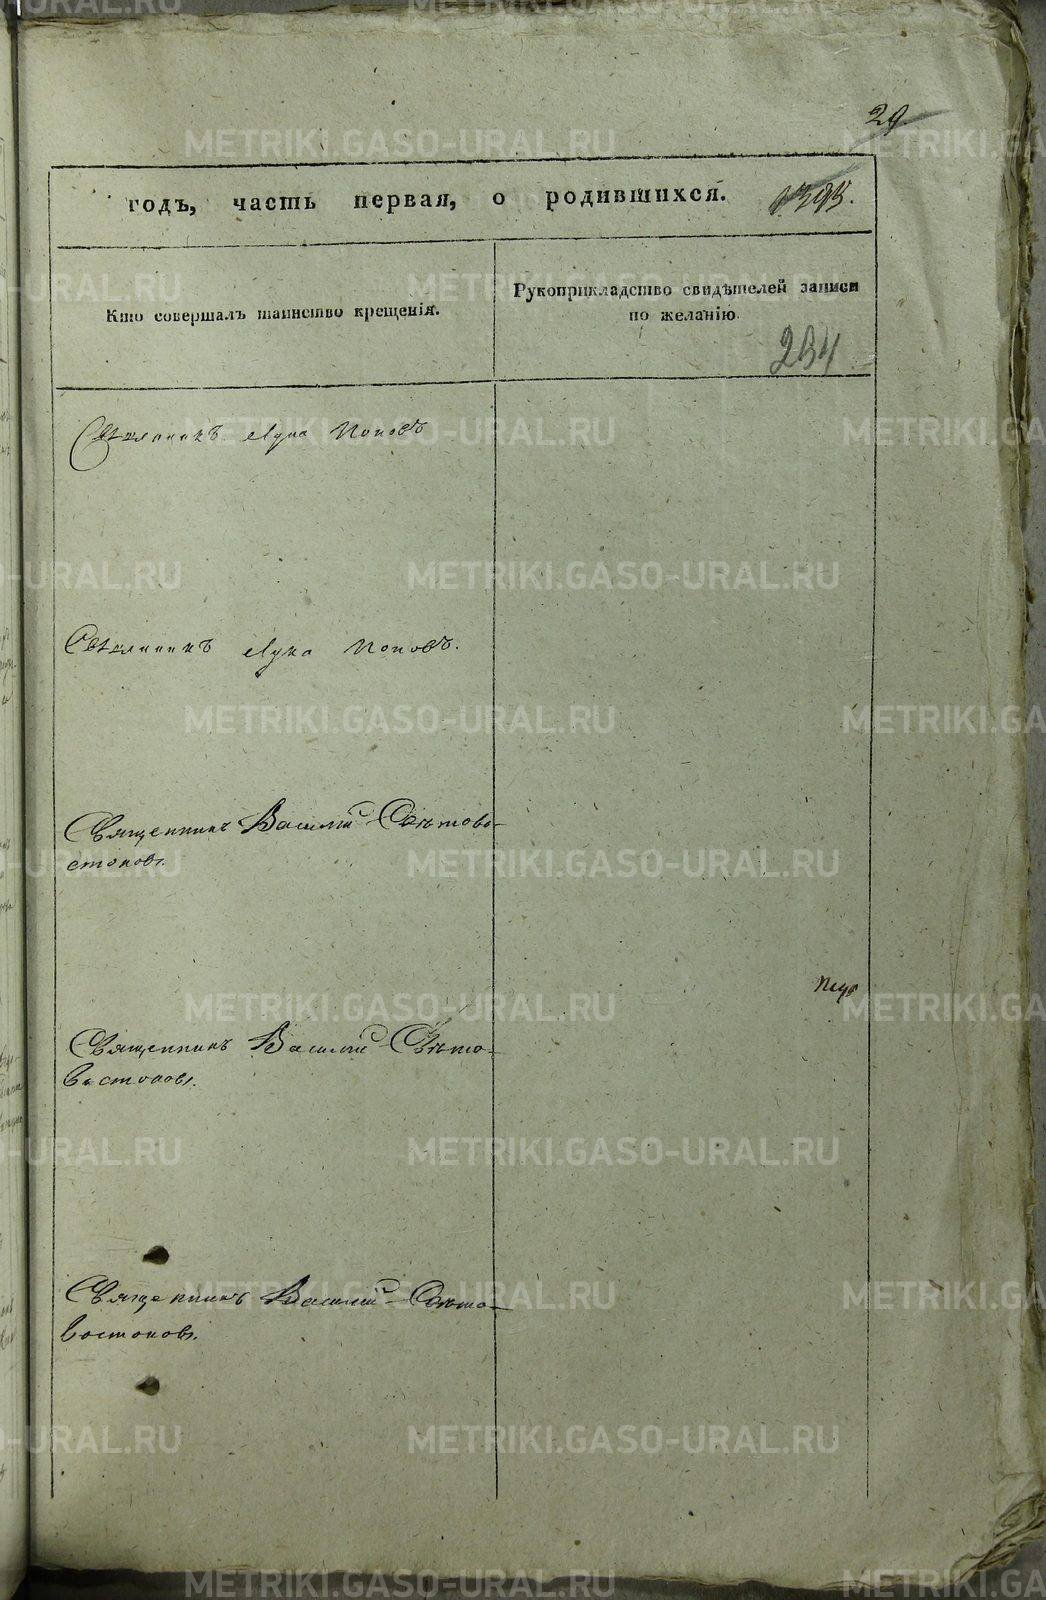 29
годъ, часть первая, о родившихся.
Кто совершалъ таинство крещенія.
Рукоприкладство свидѣтелей записи
по желанію.
234
Священникъ Лука Поповъ
Священникъ Лука Поповъ.
Священникъ Василій Свѣтово-
стоковъ.
Священникъ Василій Свѣто-
Востоковъ.
Священникъ Василій Свѣто-
востоковъ.
METRIKI.GASO-URAL.RU